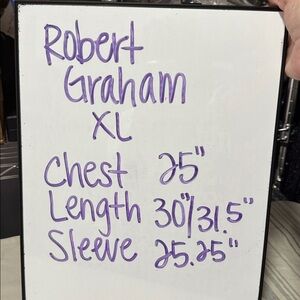 Robert
Graham
XL
Chest 25"
Length 30"/31.5"
Sleeve 25.25"